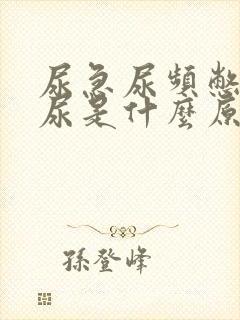 尿急尿頻憋
尿是什麼原
孫登峰